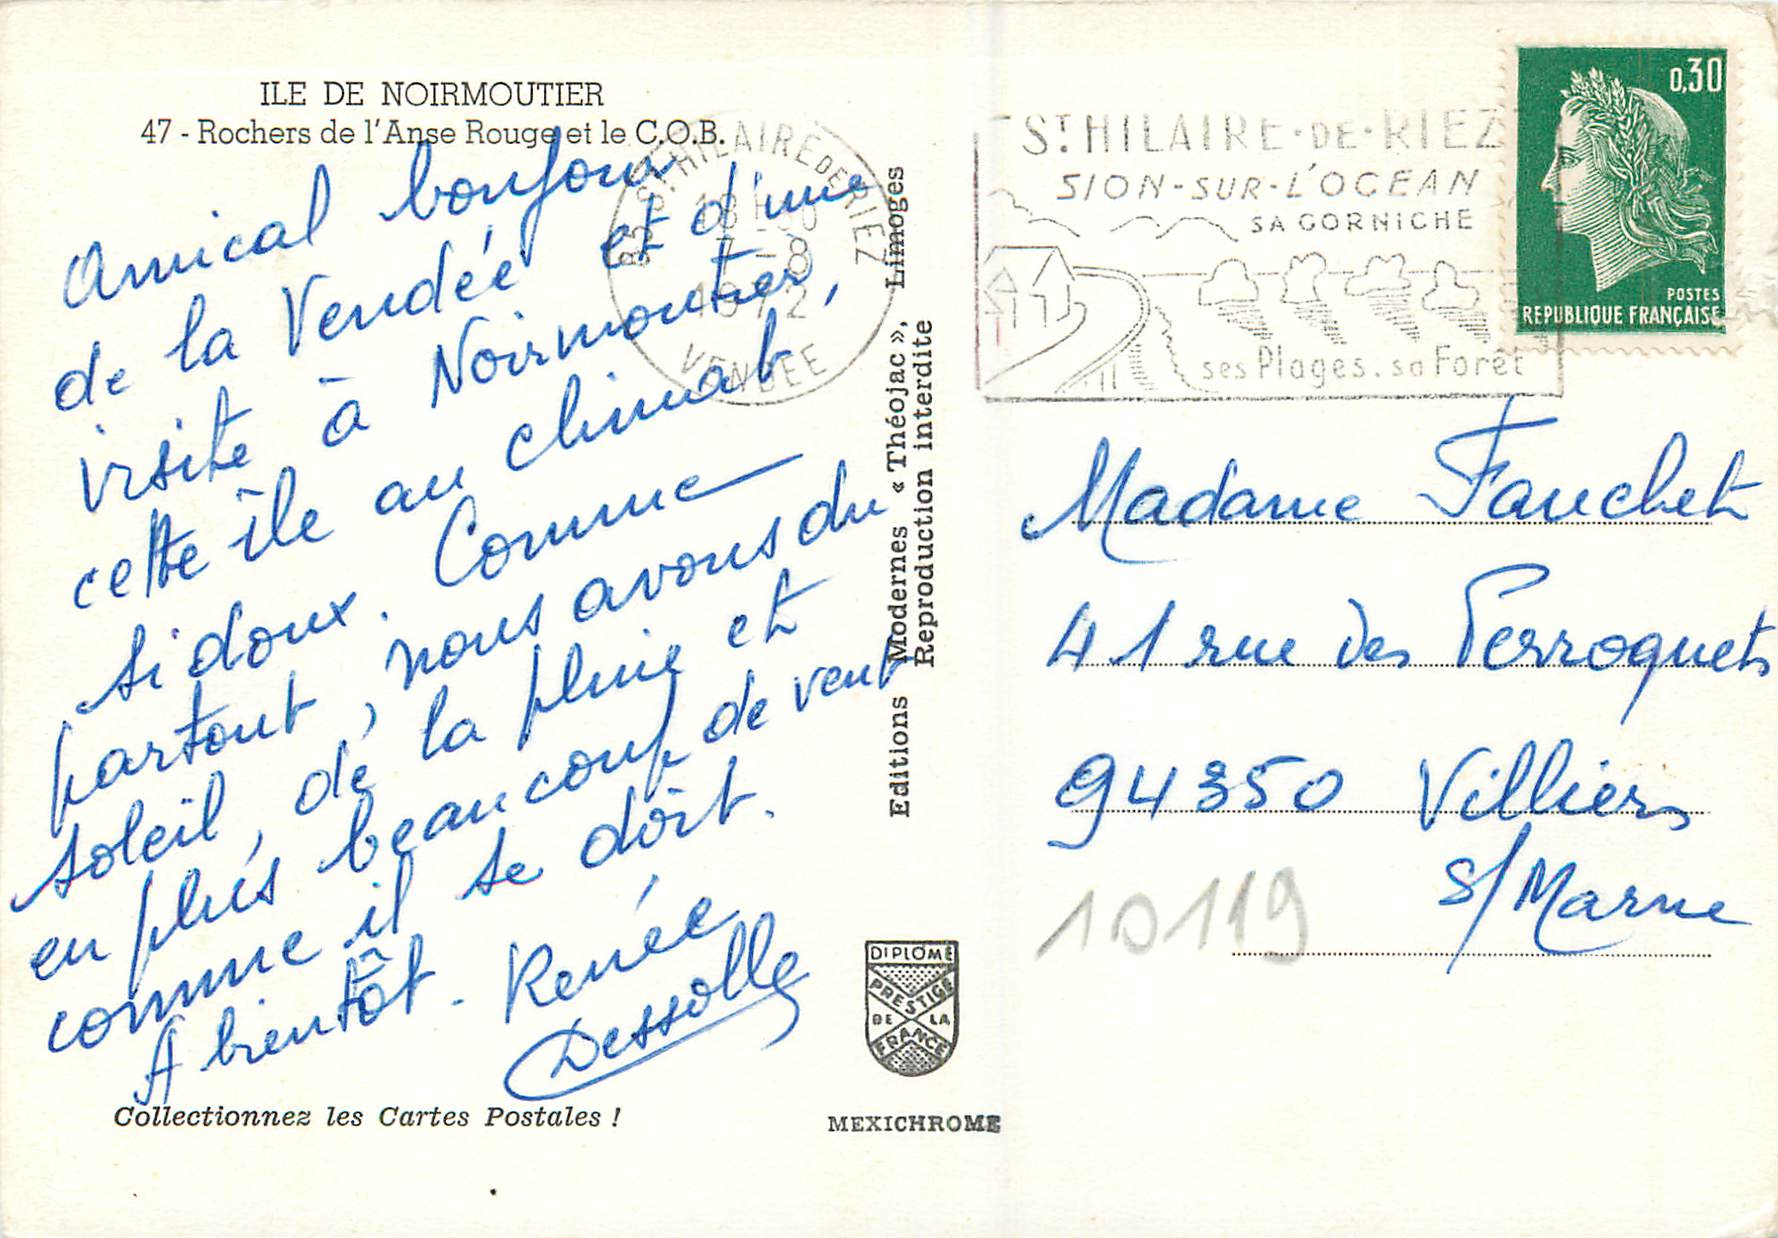 ILE DE NOIRMOUTIER
47 - Rochers de l'Anse Rouge et le C.O.B.
Amical bonjour
de la Vendée et d'une
visite à Noirmoutier,
cette île au climat
si doux. Comme
partout, nous avons du
soleil, de la pluie et
en plus beaucoup de vent
comme il se doit.
A bientôt - Renée
Dessolle
Collectionnez les Cartes Postales !
Editions Modernes « Théojac », Limoges
Reproduction interdite
DIPLOME
PRESTIGE
DE LA
FRANCE
MEXICHROME
85 ST HILAIRE DE RIEZ
18H
7-8
1972
VENDEE
ST HILAIRE-DE-RIEZ
SION-SUR-L'OCEAN
SA CORNICHE
ses Plages. sa Forêt
0,30
POSTES
REPUBLIQUE FRANÇAISE
Madame Fauchet
41 rue des Perroquets
94350 Villiers
s/Marne
10119